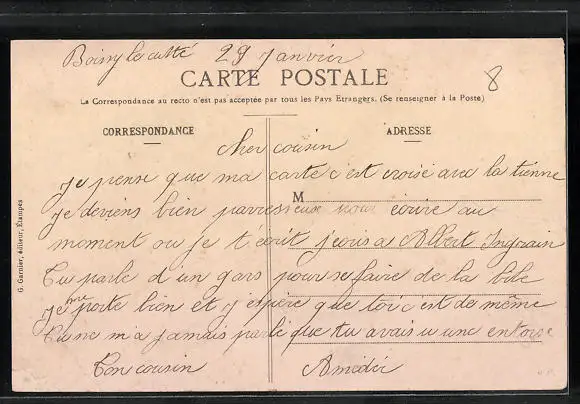 Boissy le cutté 29 Janvier
8
CARTE POSTALE
La Correspondance au recto n'est pas acceptée par tous les Pays Etrangers. (Se renseigner à la Poste)
CORRESPONDANCE
ADRESSE
cher cousin
je pense que ma carte c'est croisé avec la tienne
M
je deviens bien paresseuse pour ecrire au
moment ou je t'écrit j'cris a Albert Ingrain
Tu parle d'un gars pour se faire de la bile
je me porte bien et j'espère que toi c est de même
Tu ne m'a jamais parlé que tu avais u une entorse
Ton cousin Amédée
G. Garnier, éditeur, Étampes